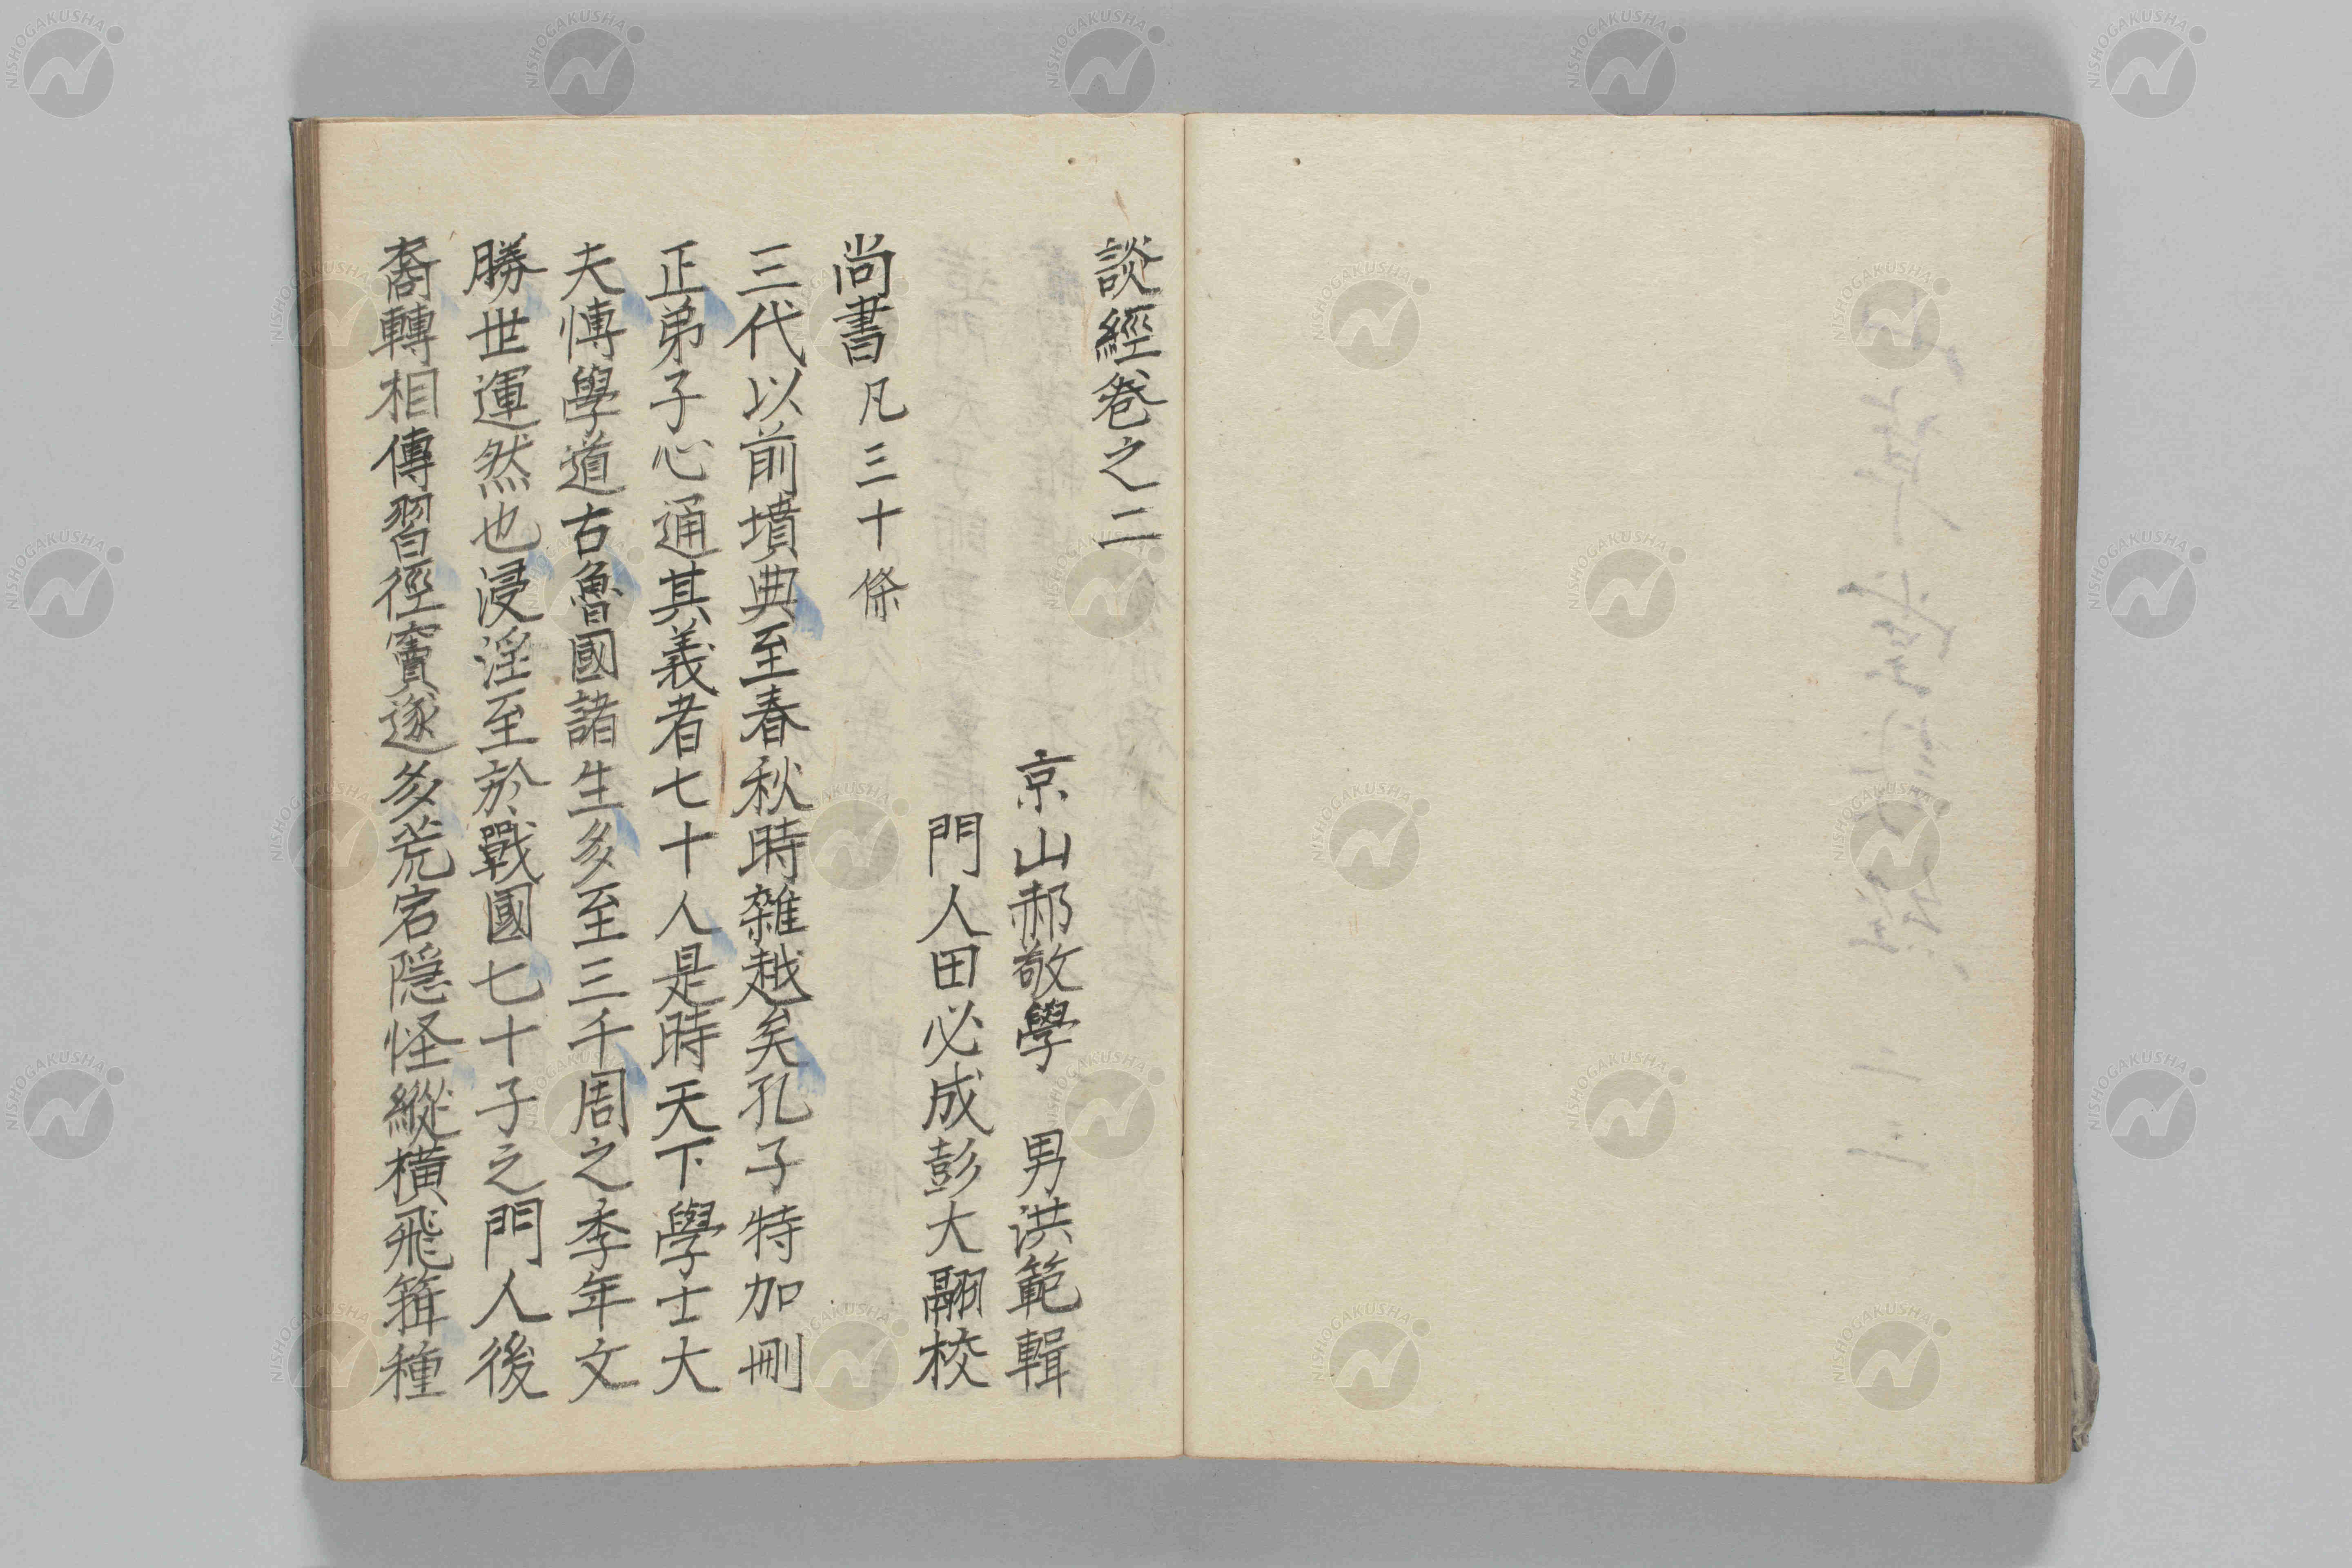 談經卷之二
京山郝敬學　男洪範輯
門人田必成彭大翮校
尚書凡三十條
三代以前墳典至春秋時雜越矣孔子特加刪
正弟子心通其義者七十人是時天下學士大
夫愽學道古魯國諸生多至三千周之季年文
勝世運然也浸淫至於戰國七十子之門人後
裔轉相傳習徑竇遂多荒宕隱怪縱橫飛箝種
NISHOGAKUSHA